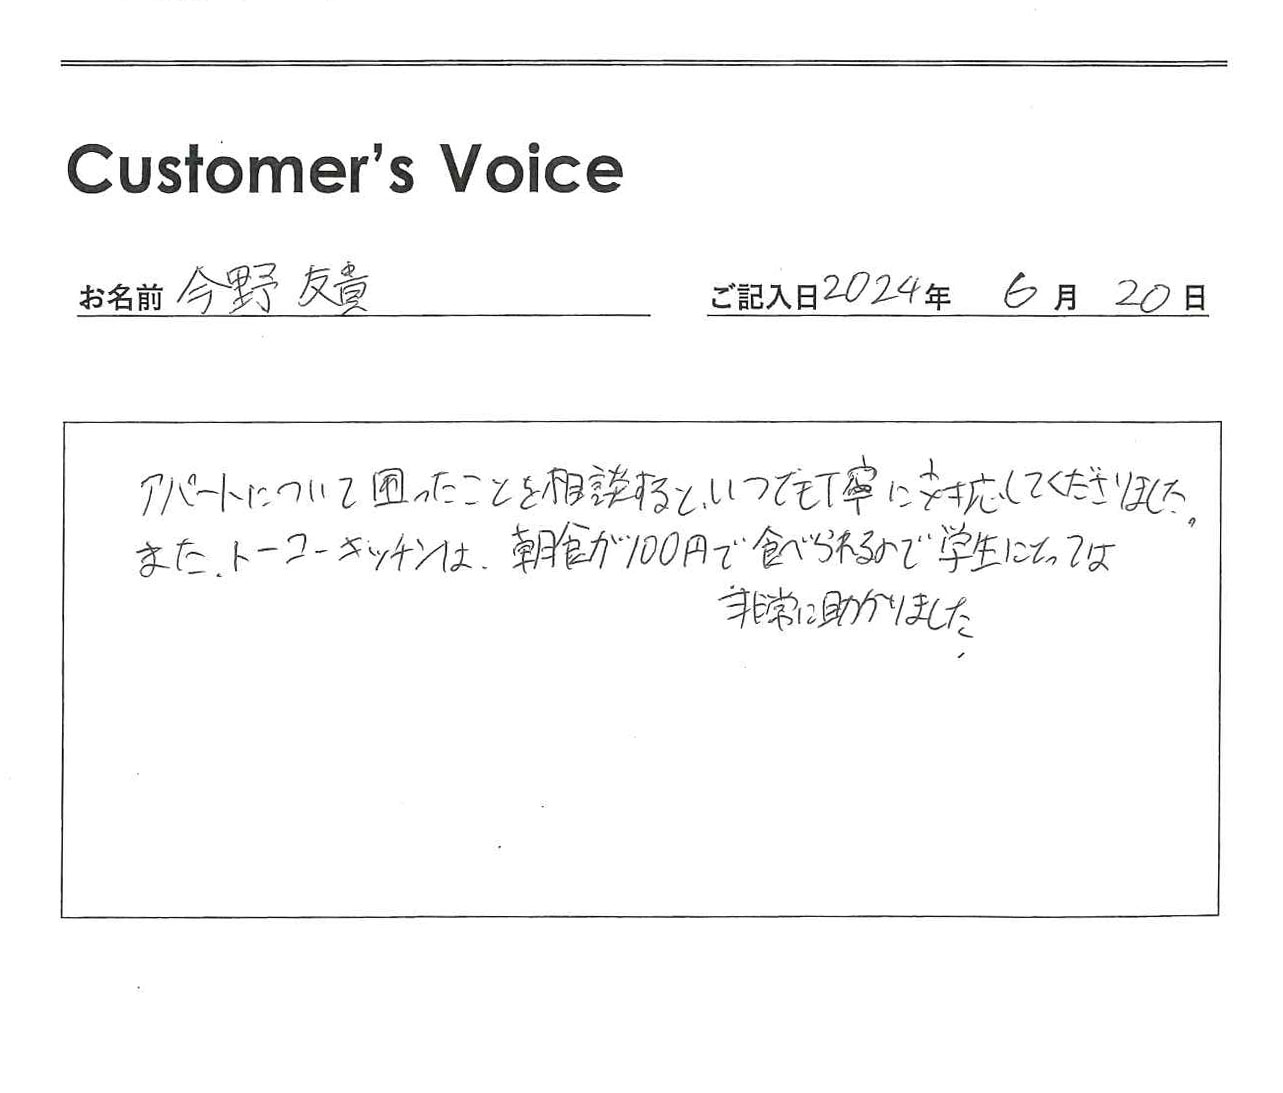 Customer's Voice
お名前 今野 友貴
ご記入日 2024年 6月 20日
アパートについて困ったことを相談すると、いつでも丁寧に対応してくださりました。
また、トーコーキッチンは、朝食が100円で食べられるので学生にとっては
非常に助かりました。